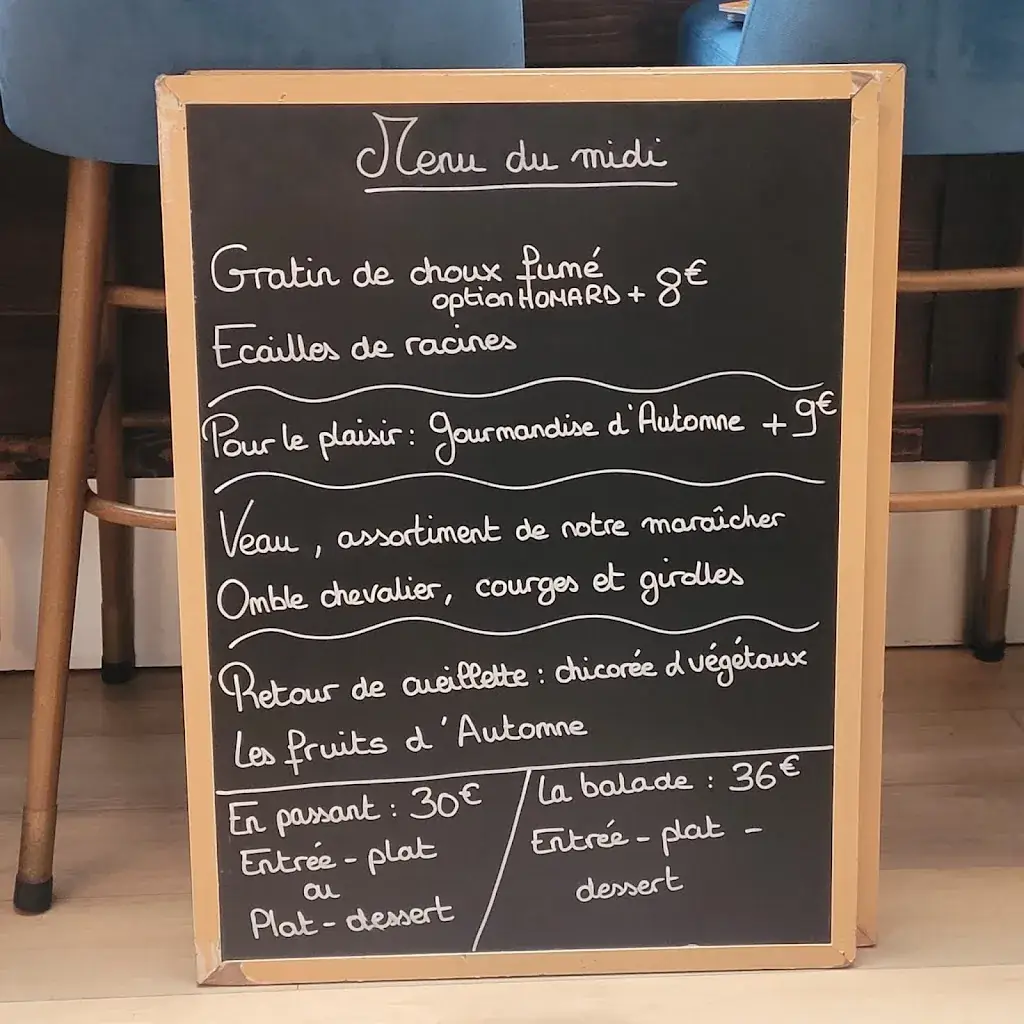 Menu du midi
Gratin de choux fumé
option HOMARD + 8€
Ecailles de racines
Pour le plaisir : gourmandise d'Automne + 9€
Veau , assortiment de notre maraîcher
Omble chevalier, courges et girolles
Retour de cueillette : chicorée d végétaux
Les fruits d'Automne
En passant : 30€
Entrée - plat
ou
Plat - dessert
La balade : 36€
Entrée - plat -
dessert